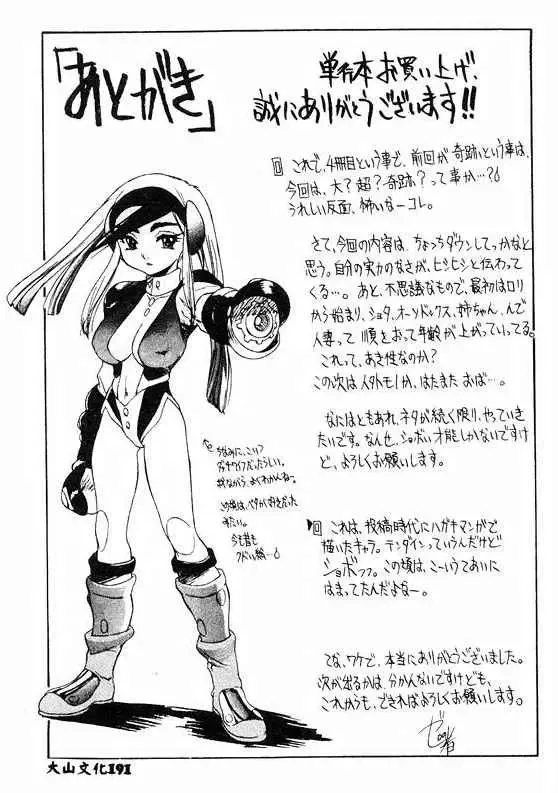 「あとがき」
単行本お買い上げ、
誠にありがとうございます!!
これで、4冊目という事で、前回が奇跡という事は、
今回は、大?超?奇跡?って事か…?
うれしい反面、怖いなーコレ。
さて、今回の内容は、ちょっちダウンしてっかなと
思う。自分の実力のなさが、ヒシヒシと伝わって
くる…。あと、不思議なもので、最初はロリ
から始まり、ショタ、オーソドックス、姉ちゃん、んで
人妻って順をおって年齢が上がっていってる。
これって、あき性なのか?
この次は か、はたまた おば…。
なにはともあれ、ネタが続く限り、やっていき
たいです。なんせ、ショボい才能しかないですけ
ど、よろしくお願いします。
ちなみに、こいつ
だったらしい。
我ながら、よくわかんねー。
この頃は、 が好きだった
みたい。
今も昔も
これは、投稿時代にハガキマンガで
描いたキャラ。テンダインっていうんだけど
ショボッッ。この頃は、こーいうてあいに
はまってたんだよなー。
てな、ワケで、本当にありがとうございました。
次が出るかは、分かんないですけども、
これからも、できればよろしくお願いします。
大山文化191